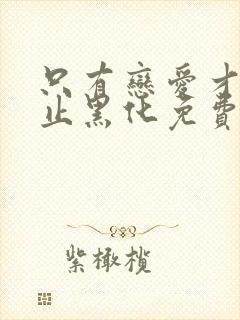 只有戀愛才
止黑化免費
紫橄欖